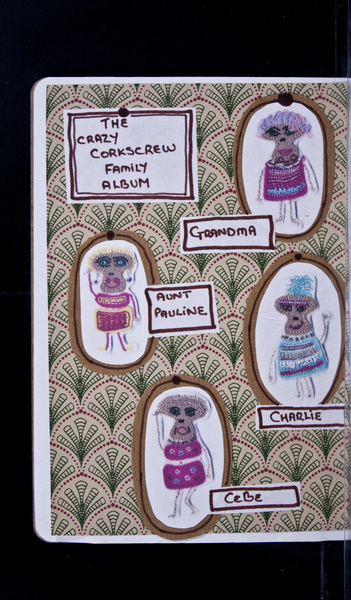 THE
CRAZY
CORKSCREW
FAMILY
ALBUM
GRANDMA
AUNT
PAULINE
CHARLIE
CeBe